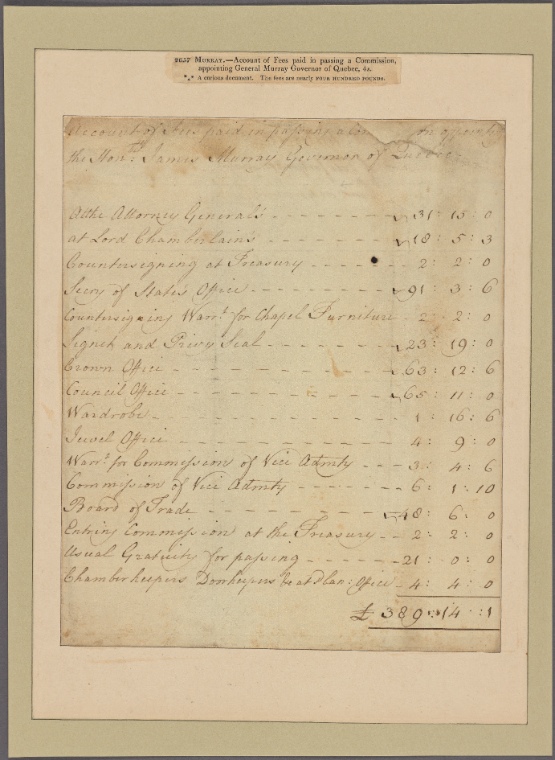 MURRAY.—Account of Fees paid in passing a Commission,
appointing General Murray Governor of Quebec, &c.
*** A curious document. The fees are nearly FOUR HUNDRED POUNDS.
Account of Fees paid in passing a
the Honble. James Murray Governor of Quebec
At the Attorney General's - - - - - - - 31 : 15 : 0
at Lord Chamberlain's - - - - - - - 18 : 5 : 3
Countersigning at Treasury - - - - - 2 : 2 : 0
Secry of State's Office - - - - - - - 91 : 3 : 6
Countersigning Warrt. for Chapel Furniture - 2 : 2 : 0
Signet and Privy Seal - - - - - - - 23 : 19 : 0
Crown Office - - - - - - - - - - 63 : 12 : 6
Council Office - - - - - - - - - - 65 : 11 : 0
Wardrobe - - - - - - - - - - - 1 : 16 : 6
Jewel Office - - - - - - - - - - 4 : 9 : 0
Warrt. for Commission of Vice Admty - - - 3 : 4 : 6
Commission of Vice Admty - - - - - - 6 : 1 : 10
Board of Trade - - - - - - - - - 48 : 6 : 0
Entring Commission at the Treasury - - 2 : 2 : 0
Usual Gratuity for passing - - - - - 21 : 0 : 0
Chamberkeepers Doorkeepers &c at Plan: Office - 4 : 4 : 0
£ 389 : 14 : 1